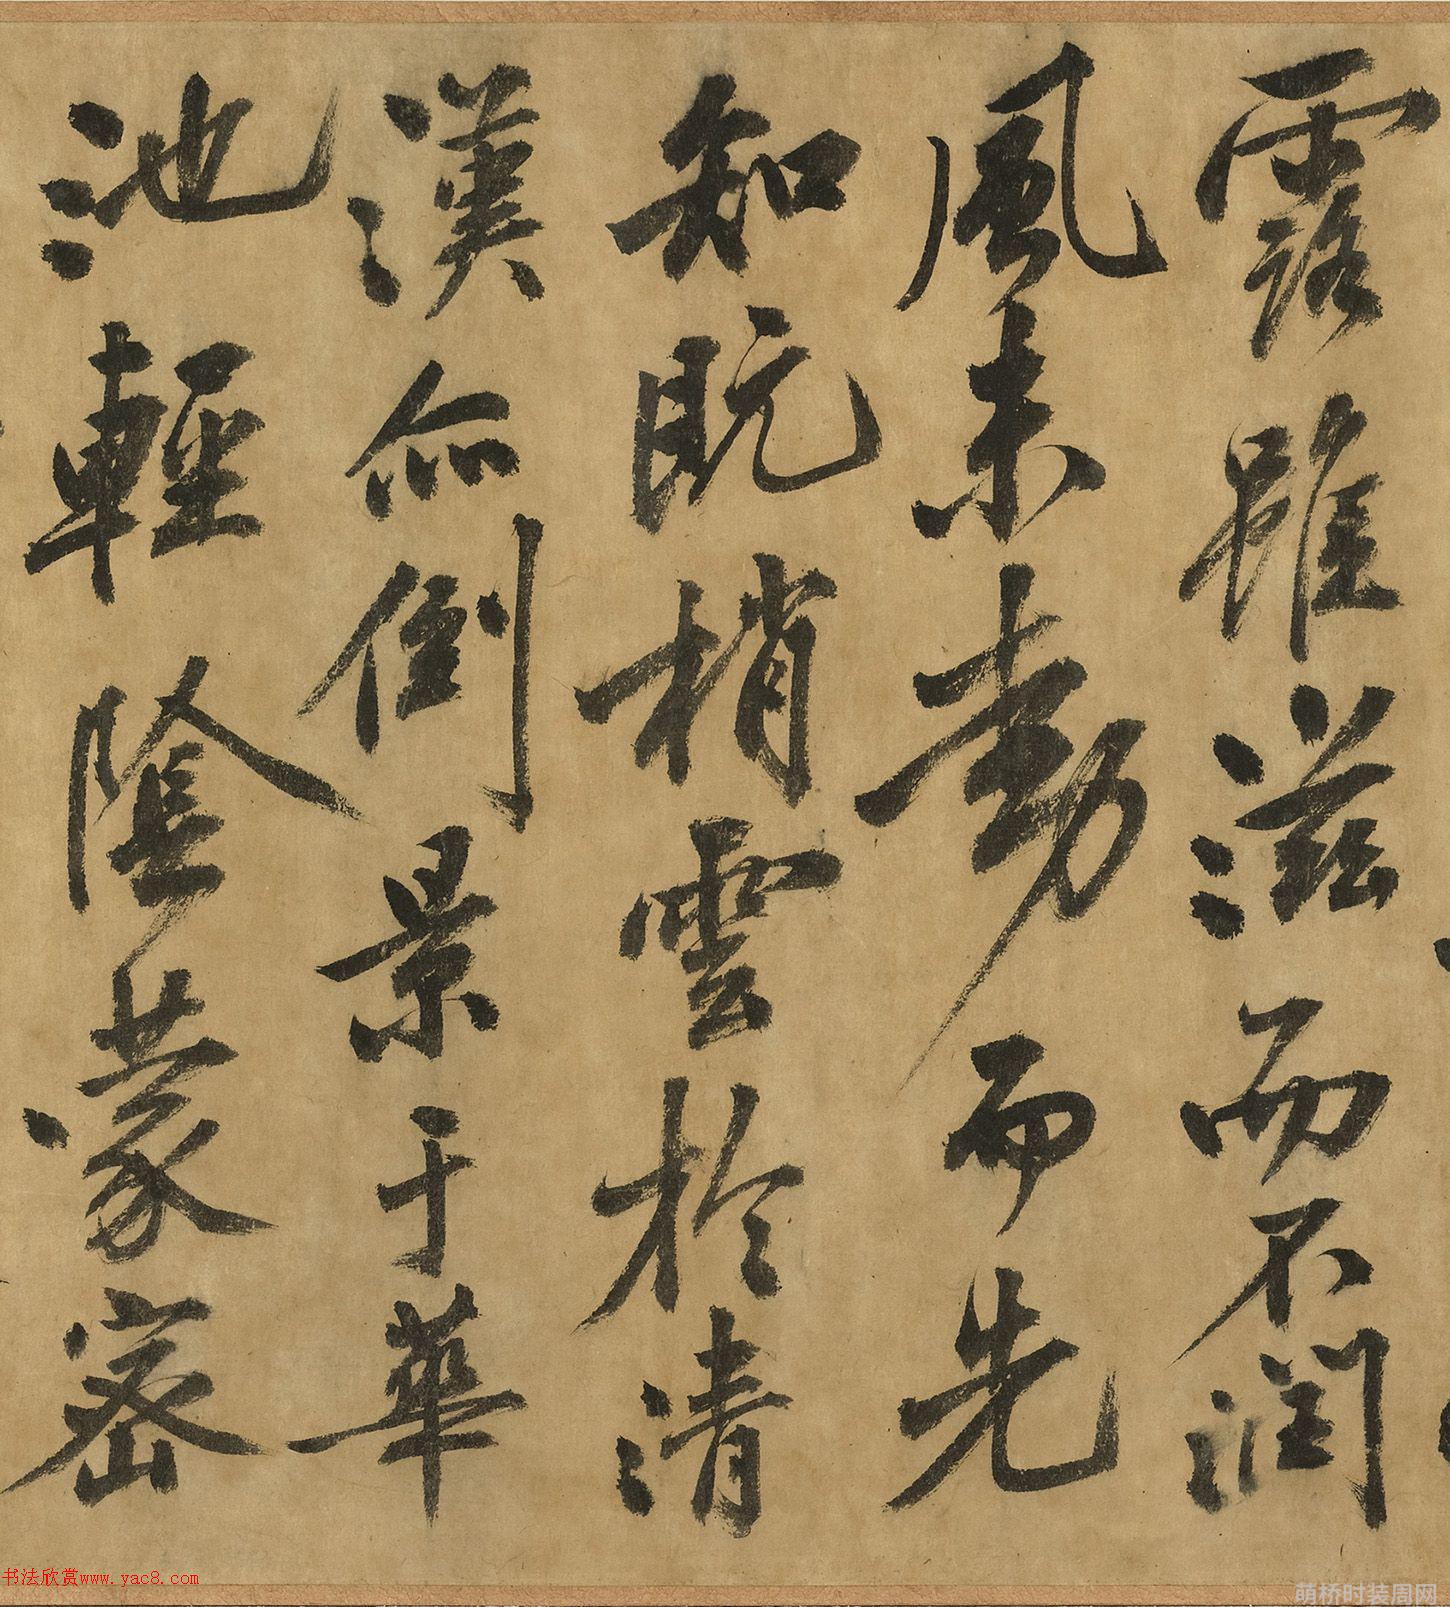 露雖滋而不润
風未動而先
知既梢雲於清
漢亦倒景于華
池輕陰蒙密
书法欣赏www.yac8.com
萌桥时装周网